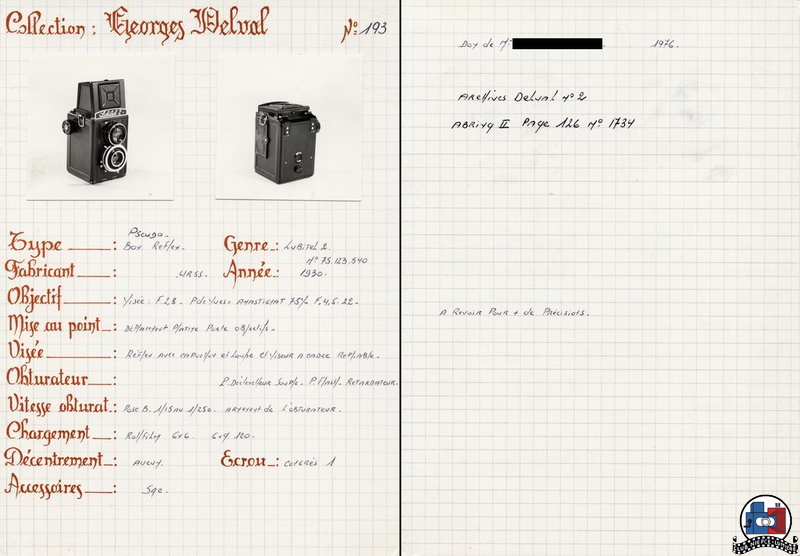 Collection : Georges Delval N° 193
Pseudo.
Type : Box Reflex. Genre : Lubitel 2.
N° 75.123.540
Fabricant : URSS. Année : 1930.
Objectif : Visée. F.2.8. Anastigmat 75% F.4,5.22.
Mise au point : Platine Porte objectifs.
Visée : Reflex avec capuchon et Loupe et Viseur a cadre
Obturateur : P. Declencheur Souple. P. Flash. Retardateur.
Vitesse obturat : Pose B. 1/15 au 1/250. armement de l'obturateur.
Chargement : Roll film 6x6. 120.
Décentrement : Aucun. Ecrou : congrès 1
Accessoires : Sac.
Don de Mr 1976.
Archives Delval n° 2
Abring II Page 126 N° 1734
A Revoir Pour + de Précisions.